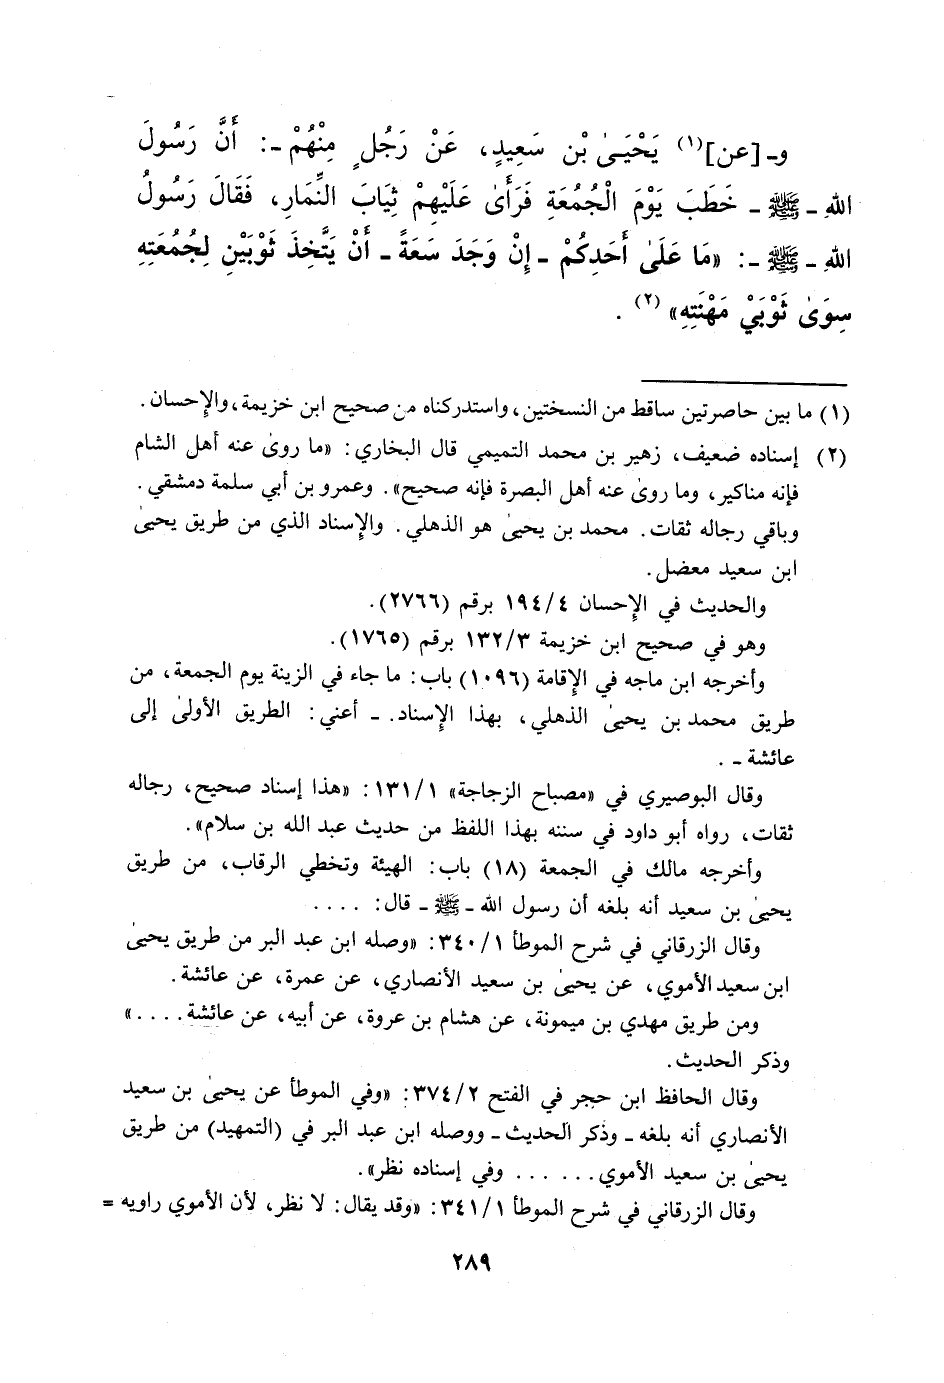 وَ ـ [عن](١) يَحْيَىٰ بْنِ سَعِيدٍ، عَنْ رَجُلٍ مِنْهُمْ ـ: أَنَّ رَسُولَ
اللهِ ـ ﷺ ـ خَطَبَ يَوْمَ الْجُمُعَةِ فَرَأَىٰ عَلَيْهِمْ ثِيَابَ النِّمَارِ، فَقَالَ رَسُولُ
اللهِ ـ ﷺ ـ: «مَا عَلَىٰ أَحَدِكُمْ ـ إِنْ وَجَدَ سَعَةً ـ أَنْ يَتَّخِذَ ثَوْبَيْنِ لِجُمُعَتِهِ
سِوَىٰ ثَوْبَيْ مَهْنَتِهِ»(٢).
(١) ما بين حاصرتين ساقط من النسختين، واستدركناه من صحيح ابن خزيمة، والإحسان.
(٢) إسناده ضعيف، زهير بن محمد التميمي قال البخاري: «ما روىٰ عنه أهل الشام
فإنه مناكير، وما روىٰ عنه أهل البصرة فإنه صحيح». وعمرو بن أبي سلمة دمشقي.
وباقي رجاله ثقات. محمد بن يحيىٰ هو الذهلي. والإسناد الذي من طريق يحيىٰ
ابن سعيد معضل.
والحديث في الإحسان ١٩٤/٤ برقم (٢٧٦٦).
وهو في صحيح ابن خزيمة ١٣٢/٣ برقم (١٧٦٥).
وأخرجه ابن ماجه في الإقامة (١٠٩٦) باب: ما جاء في الزينة يوم الجمعة، من
طريق محمد بن يحيىٰ الذهلي، بهذا الإسناد. ـ أعني: الطريق الأولىٰ إلى
عائشة ـ .
وقال البوصيري في «مصباح الزجاجة» ١٣١/١: «هذا إسناد صحيح، رجاله
ثقات، رواه أبو داود في سننه بهذا اللفظ من حديث عبد الله بن سلام».
وأخرجه مالك في الجمعة (١٨) باب: الهيئة وتخطي الرقاب، من طريق
يحيىٰ بن سعيد أنه بلغه أن رسول الله ـ ﷺ ـ قال: ....
وقال الزرقاني في شرح الموطأ ٣٤٠/١: «وصله ابن عبد البر من طريق يحيىٰ
ابن سعيد الأموي، عن يحيىٰ بن سعيد الأنصاري، عن عمرة، عن عائشة.
ومن طريق مهدي بن ميمونة، عن هشام بن عروة، عن أبيه، عن عائشة....»
وذكر الحديث.
وقال الحافظ ابن حجر في الفتح ٣٧٤/٢: «وفي الموطأ عن يحيىٰ بن سعيد
الأنصاري أنه بلغه ـ وذكر الحديث ـ ووصله ابن عبد البر في (التمهيد) من طريق
يحيىٰ بن سعيد الأموي...... وفي إسناده نظر».
وقال الزرقاني في شرح الموطأ ٣٤١/١: «وقد يقال: لا نظر، لأن الأموي راويه =
٢٨٩